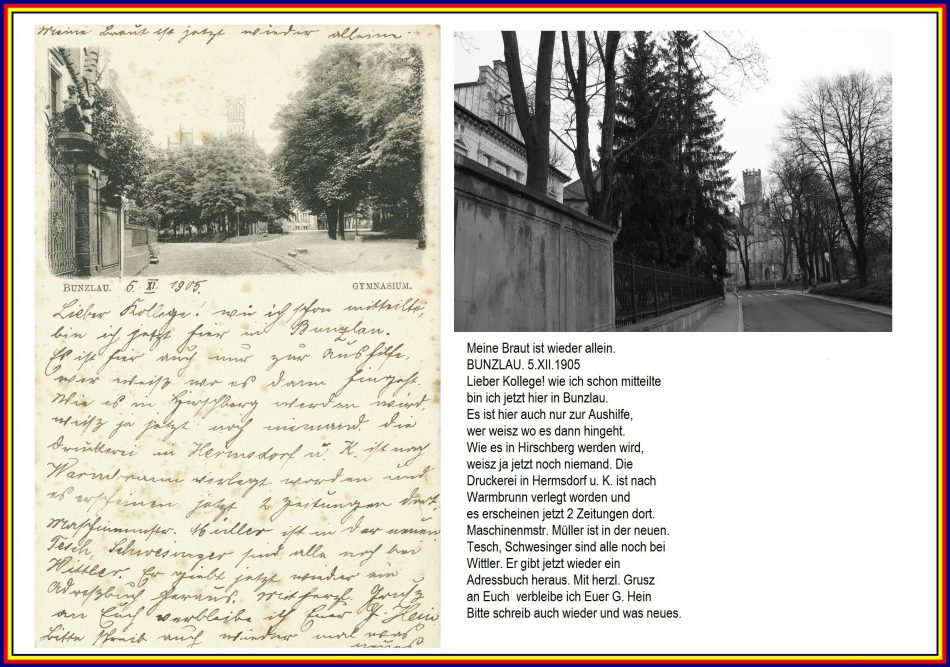 Meine Braut ist jetzt wieder alleine.
BUNZLAU. 6. XI. 1905. GYMNASIUM.
Lieber Kollege! wie ich schon mitteilte,
bin ich jetzt hier in Bunzlau.
Es ist hier auch nur zur Aushilfe,
wer weiß wo es dann hingeht.
Wie es in Hirschberg werden wird
weiß ja jetzt noch niemand. die
Druckerei in Hermsdorf u. K. ist nach
Warmbrunn verlegt worden und
es erscheinen jetzt 2 Zeitungen dort.
Maschinenmstr. Müller ist in der neuen
Tesch, Schwesinger sind alle noch bei
Wittler. Er giebt jetzt wieder ein
Adreßbuch heraus. Mit herzl. Gruß
an Euch verbleibe ich Euer G. Hein
Bitte schreib auch wieder mal was
neues.
Meine Braut ist wieder allein.
BUNZLAU. 5.XII.1905
Lieber Kollege! wie ich schon mitteilte
bin ich jetzt hier in Bunzlau.
Es ist hier auch nur zur Aushilfe,
wer weisz wo es dann hingeht.
Wie es in Hirschberg werden wird,
weisz ja jetzt noch niemand. Die
Druckerei in Hermsdorf u. K. ist nach
Warmbrunn verlegt worden und
es erscheinen jetzt 2 Zeitungen dort.
Maschinenmstr. Müller ist in der neuen.
Tesch, Schwesinger sind alle noch bei
Wittler. Er gibt jetzt wieder ein
Adressbuch heraus. Mit herzl. Grusz
an Euch verbleibe ich Euer G. Hein
Bitte schreib auch wieder und was neues.